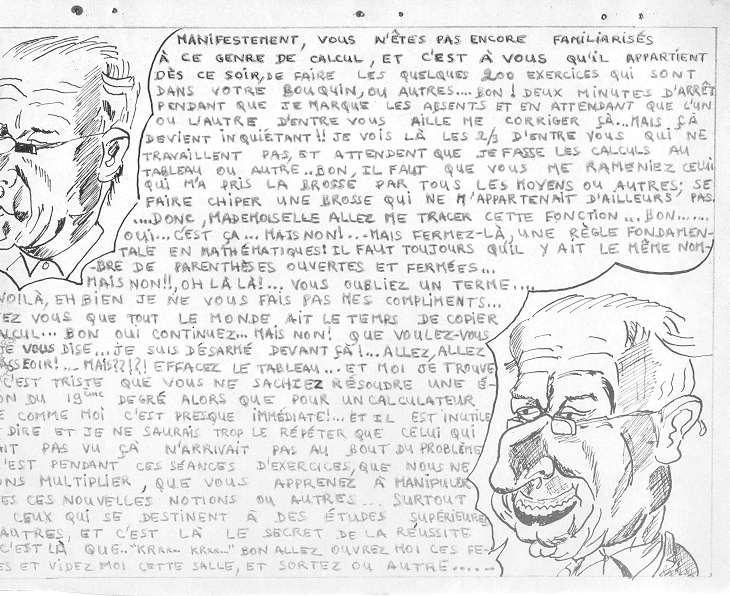 MANIFESTEMENT, VOUS N'ÊTES PAS ENCORE FAMILIARISÉS
À CE GENRE DE CALCUL, ET C'EST À VOUS QU'IL APPARTIENT
DÈS CE SOIR, DE FAIRE LES QUELQUES 200 EXERCICES QUI SONT
DANS VOTRE BOUQUIN, OU AUTRES.... BON! DEUX MINUTES D'ARRÊT
PENDANT QUE JE MARQUE LES ABSENTS ET EN ATTENDANT QUE L'UN
OU L'AUTRE D'ENTRE VOUS AILLE ME CORRIGER ÇA...MAIS ÇA
DEVIENT INQUIÉTANT!! JE VOIS LÀ LES 2/3 D'ENTRE VOUS QUI NE
TRAVAILLENT PAS, ET ATTENDENT QUE JE FASSE LES CALCULS AU
TABLEAU OU AUTRE..BON, IL FAUT QUE VOUS ME RAMENIEZ CELUI
QUI M'A PRIS LA BROSSE PAR TOUS LES MOYENS OU AUTRES; SE
FAIRE CHIPER UNE BROSSE QUI NE M'APPARTENAIT D'AILLEURS PAS.
....DONC, MADEMOISELLE ALLEZ ME TRACER CETTE FONCTION...BON......
OUI...C'EST ÇA...MAIS NON!...-MAIS FERMEZ-LÀ, UNE RÈGLE FONDAMEN-
TALE EN MATHÉMATIQUES! IL FAUT TOUJOURS QU'IL Y AIT LE MÊME NOM-
-BRE DE PARENTHÈSES OUVERTES ET FERMÉES...
MAIS NON!!, OH LÀ LÀ!... VOUS OUBLIEZ UN TERME....
VOILÀ, EH BIEN JE NE VOUS FAIS PAS MES COMPLIMENTS...
EZ VOUS QUE TOUT LE MONDE AIT LE TEMPS DE COPIER
LCUL... BON OUI CONTINUEZ...MAIS NON! QUE VOULEZ-VOUS
JE VOUS DISE...JE SUIS DÉSARMÉ DEVANT ÇÀ!...ALLEZ, ALLEZ
ASSEOIR!... MAIS??!?! EFFACEZ LE TABLEAU... ET MOI JE TROUVE
C'EST TRISTE QUE VOUS NE SACHIEZ RÉSOUDRE UNE É-
ON DU 19ème DEGRÉ ALORS QUE POUR UN CALCULATEUR
E COMME MOI C'EST PRESQUE IMMÉDIATE!...ET IL EST INUTILE
DIRE ET JE NE SAURAIS TROP LE RÉPÉTER QUE CELUI QUI
NT PAS VU ÇA N'ARRIVAIT PAS AU BOUT DU PROBLÈME
'EST PENDANT CES SÉANCES D'EXERCICES, QUE NOUS NE
ONS MULTIPLIER, QUE VOUS APPRENEZ À MANIPULER
ES CES NOUVELLES NOTIONS OU AUTRES... SURTOUT
CEUX QUI SE DESTINENT À DES ÉTUDES SUPÉRIEURE
AUTRES, ET C'EST LÀ LE SECRET DE LA RÉUSSITE
C'EST LÀ QUE.."KRRR... KRRR..." BON ALLEZ OUVREZ MOI CES FE-
ES ET VIDEZ MOI CETTE SALLE, ET SORTEZ OU AUTRE.....